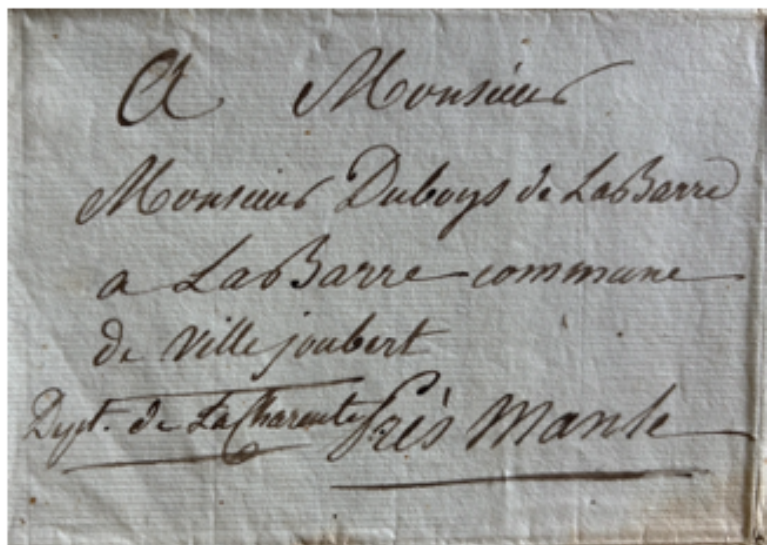 A Monsieur
Monsieur Duboys de LaBarre
a LaBarre commune
de Ville joubert
Dept. de La Charente près Mansle